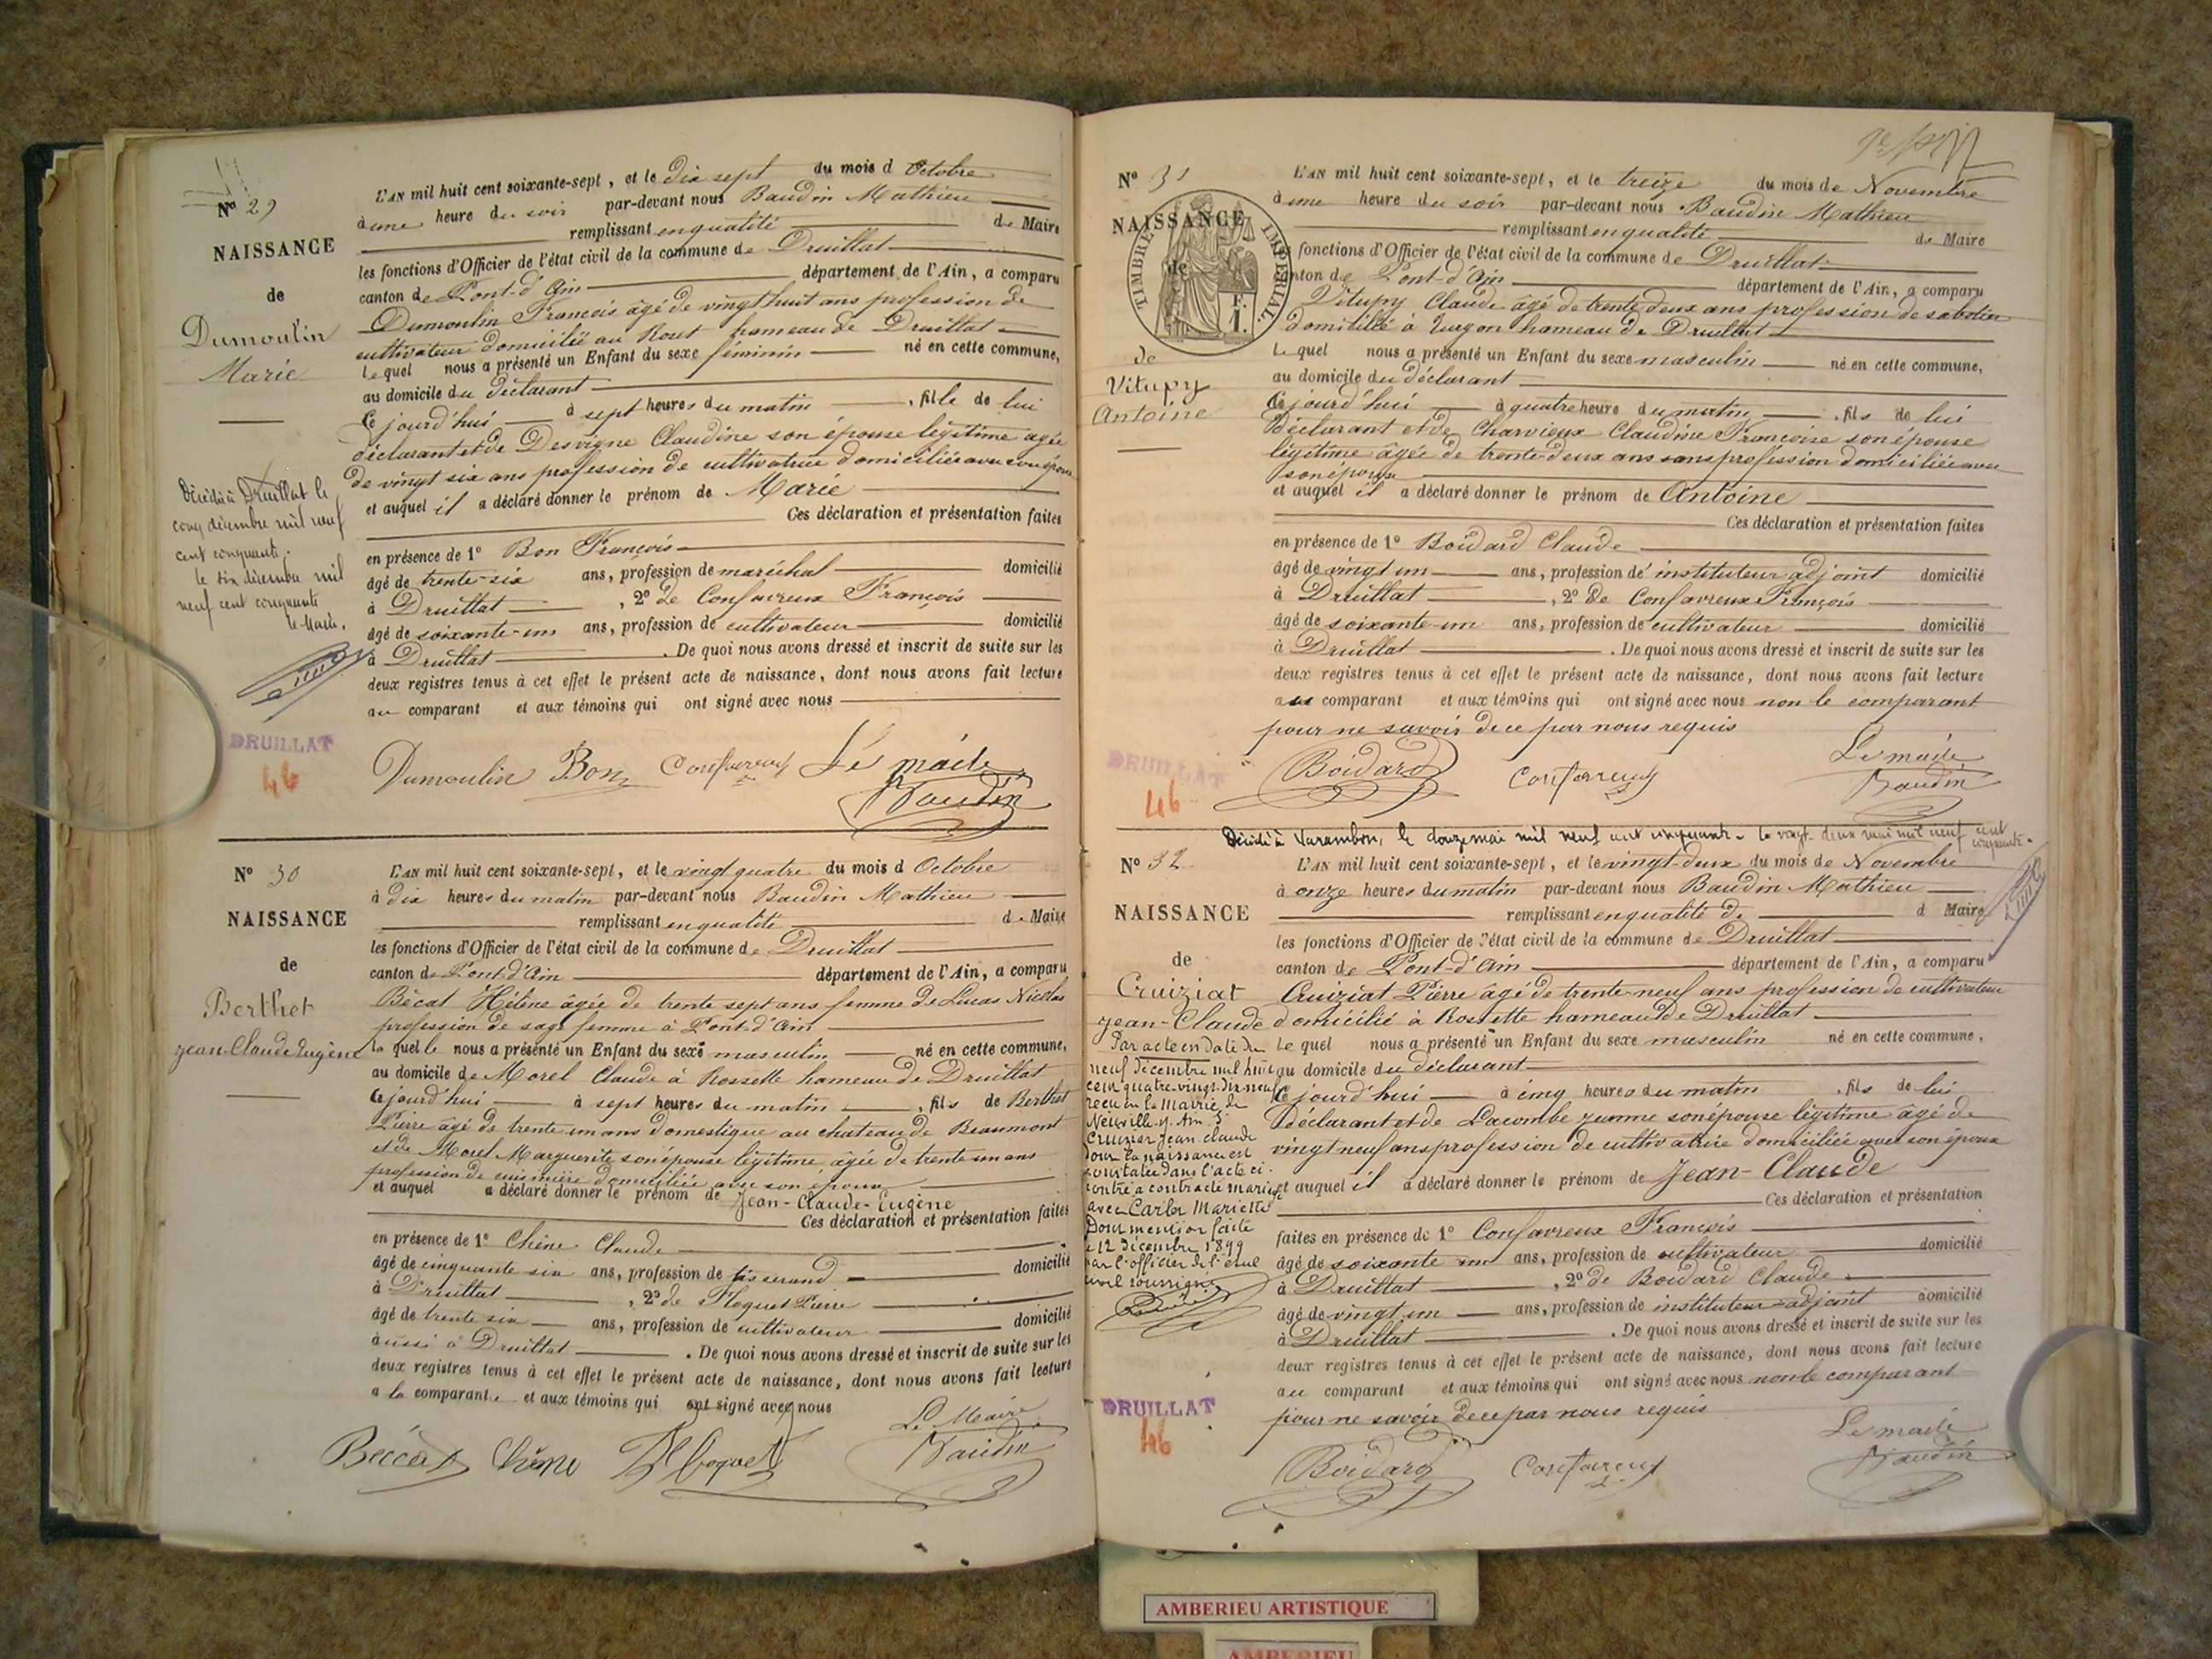 N° 29
NAISSANCE
de
Dumoulin
Marie
Décédée à Druillat le
cinq décembre mil neuf
cent cinquante.
le six décembre mil
neuf cent cinquante
le Maire.
DRUILLAT
46
L'AN mil huit cent soixante-sept, et le dix sept du mois d Octobre
à une heure du soir par-devant nous Baudin Mathieu
remplissant en qualité de Maire
les fonctions d'Officier de l'état civil de la commune de Druillat
canton de Pont-d'Ain département de l'Ain, a comparu
Dumoulin François âgé de vingt huit ans profession de
cultivateur domicilié au Rout hameau de Druillat
Le quel nous a présenté un Enfant du sexe féminin né en cette commune,
au domicile du déclarant
Ce jourd'hui à sept heures du matin, fille de lui
déclarant et de Desvigne Claudine son épouse légitime agée
de vingt six ans profession de cultivatrice domiciliée avec son époux
et auquel il a déclaré donner le prénom de Marie
Ces déclaration et présentation faites
en présence de 1° Bon François
âgé de trente-six ans, profession de maréchal domicilié
à Druillat, 2° de Confavreux François
âgé de soixante-un ans, profession de cultivateur domicilié
à Druillat. De quoi nous avons dressé et inscrit de suite sur les
deux registres tenus à cet effet le présent acte de naissance, dont nous avons fait lecture
au comparant et aux témoins qui ont signé avec nous
Dumoulin Bon Confavreux Le maire
Baudin
N° 30
NAISSANCE
de
Berthet
Jean-Claude Eugène
L'AN mil huit cent soixante-sept, et le vingt quatre du mois d Octobre
à dix heures du matin par-devant nous Baudin Mathieu
remplissant en qualité de Maire
les fonctions d'Officier de l'état civil de la commune de Druillat
canton de Pont-d'Ain département de l'Ain, a comparu
Bécat Hélène agée de trente sept ans femme de Lucas Nicolas
profession de sage femme à Pont-d'Ain
La quelle nous a présenté un Enfant du sexe masculin né en cette commune,
au domicile de Morel Claude à Rossette hameau de Druillat
Ce jourd'hui à sept heures du matin, fils de Berthet
Pierre âgé de trente un ans domestique au chateau de Beaumont
et de Morel Marguerite son épouse légitime âgée de trente un ans
profession de cuisinière domiciliée avec son époux
et auquel a déclaré donner le prénom de Jean-Claude-Eugène
Ces déclaration et présentation faites
en présence de 1° Chêne Claude
âgé de cinquante six ans, profession de tisserand domicilié
à Druillat, 2° de Floquet Pierre
âgé de trente six ans, profession de cultivateur domicilié
aussi à Druillat. De quoi nous avons dressé et inscrit de suite sur les
deux registres tenus à cet effet le présent acte de naissance, dont nous avons fait lecture
a la comparante et aux témoins qui ont signé avec nous
Le Maire
Béccat Chêne Floquet Baudin
N° 31
NAISSANCE
TIMBRE IMPERIAL
de
Vitupy
Antoine
DRUILLAT
46
L'AN mil huit cent soixante-sept, et le treize du mois de Novembre
à une heure du soir par-devant nous Baudin Mathieu
remplissant en qualité de Maire
fonctions d'Officier de l'état civil de la commune de Druillat
canton de Pont-d'Ain département de l'Ain, a comparu
Vitupy Claude âgé de trente deux ans profession de sabotier
domicilié à Turgon hameau de Druillat
Le quel nous a présenté un Enfant du sexe masculin né en cette commune,
au domicile du déclarant
Ce jourd'hui à quatre heure du matin, fils de lui
Déclarant et de Charvieux Claudine Françoise son épouse
légitime âgée de trente-deux ans sans profession domiciliée avec
son époux
et auquel il a déclaré donner le prénom de Antoine
Ces déclaration et présentation faites
en présence de 1° Boidard Claude
âgé de vingt un ans, profession de instituteur adjoint domicilié
à Druillat, 2° de Confavreux François
âgé de soixante-un ans, profession de cultivateur domicilié
à Druillat. De quoi nous avons dressé et inscrit de suite sur les
deux registres tenus à cet effet le présent acte de naissance, dont nous avons fait lecture
au comparant et aux témoins qui ont signé avec nous non le comparant
pour ne savoir de ce par nous requis
Boidard Confavreux Le maire
Baudin
Décédé à Varambon, le douze mai mil neuf cent cinquante. le vingt-deux mai mil neuf cent
cinquante.
N° 32
NAISSANCE
de
Cruiziat
Jean-Claude
Par acte en date du
neuf décembre mil huit
cent quatre-vingt-dix-neuf
reçu en la Mairie de
Neuville-s.-Ain
Cruiziat Jean Claude
dont la naissance est
constatée dans l'acte ci-
contre a contracté mariage
avec Carlor Mariette
Dont mention faite
le 12 Décembre 1899
par l'officier de l'état
civil soussigné
DRUILLAT
46
L'AN mil huit cent soixante-sept, et le vingt-deux du mois de Novembre
à onze heures du matin par-devant nous Baudin Mathieu
remplissant en qualité de d Maire
les fonctions d'Officier de l'état civil de la commune de Druillat
canton de Pont-d'Ain département de l'Ain, a comparu
Cruiziat Pierre âgé de trente-neuf ans profession de cultivateur
domicilié à Rossette hameau de Druillat
Le quel nous a présenté un Enfant du sexe masculin né en cette commune,
au domicile du déclarant
Ce jourd'hui à cinq heures du matin, fils de lui
déclarant et de Lacombe Jeanne son épouse légitime âgé de
vingt neuf ans profession de cultivatrice domiciliée avec son époux
et auquel il a déclaré donner le prénom de Jean-Claude
Ces déclaration et présentation
faites en présence de 1° Confavreux François
âgé de soixante un ans, profession de cultivateur domicilié
à Druillat, 2° de Boidard Claude
âgé de vingt un ans, profession de instituteur-adjoint domicilié
à Druillat. De quoi nous avons dressé et inscrit de suite sur les
deux registres tenus à cet effet le présent acte de naissance, dont nous avons fait lecture
au comparant et aux témoins qui ont signé avec nous non le comparant
pour ne savoir de ce par nous requis
Boidard Confavreux Le maire
Baudin
AMBERIEU ARTISTIQUE
AMBERIEU